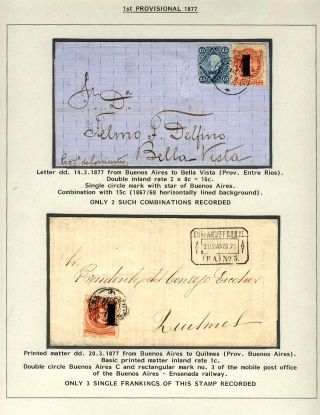 1st PROVISIONAL 1877
Sr. Dn.
Telmo F. Delfino
Bella Vista
Letter dd. 14.2.1877 from Buenos Aires to Bella Vista (Prov. Entre Rios).
Double inland rate 2 x 8c = 16c.
Single circle mark with star of Buenos Aires.
Combination with 15c (1867/68 horizontally lined background).
ONLY 2 SUCH COMBINATIONS RECORDED
(BA) No 3.
Presidente del Consejo Escolar
Quilmes
Printed matter dd. 20.3.1877 from Buenos Aires to Quilmes (Prov. Buenos Aires).
Basic printed matter inland rate 1c.
Double circle Buenos Aires C and rectangular mark no. 3 of the mobile post office
of the Buenos Aires - Ensenada railway.
ONLY 3 SINGLE FRANKINGS OF THIS STAMP RECORDED